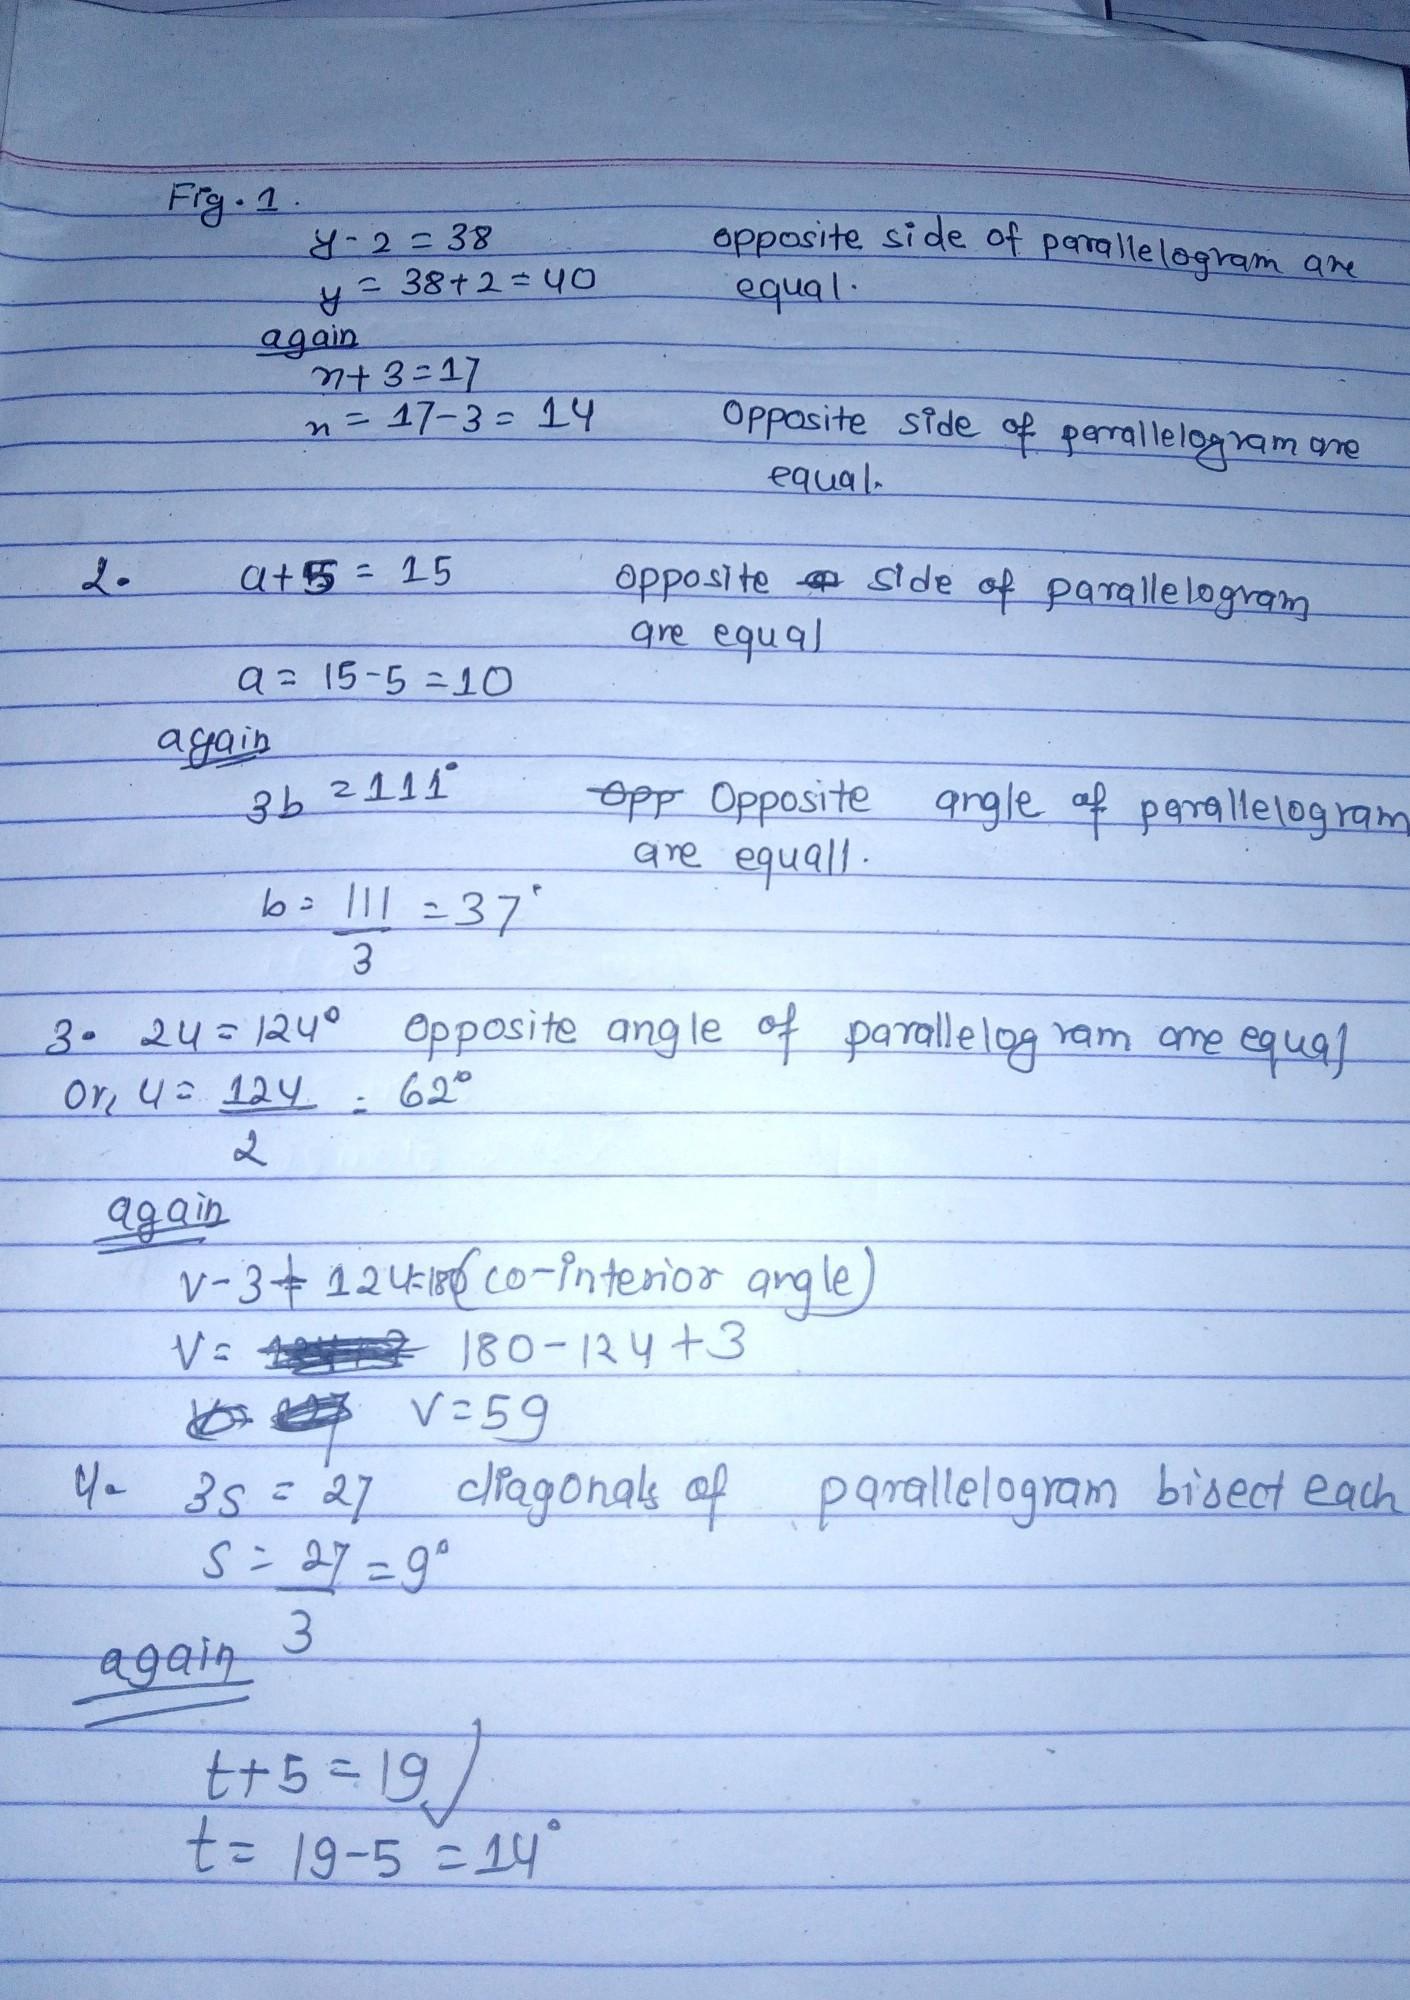 Fig. 1.
y - 2 = 38 opposite side of parallelogram are
y = 38 + 2 = 40 equal.
again
x + 3 = 17
x = 17 - 3 = 14 Opposite side of parallelogram are
equal.
2. a + 5 = 15 opposite side of parallelogram
are equal
a = 15 - 5 = 10
again
3b = 111° Opp Opposite angle of parallelogram
are equall.
b = 111 = 37°
3
3. 2u = 124° opposite angle of parallelogram are equal
or, u = 124 = 62°
2
again
v - 3 + 124 = 180 (co-interior angle)
v = 180 - 124 + 3
v = 59
4. 3s = 27 diagonals of parallelogram bisect each
s = 27 = 9°
3
again
t + 5 = 19
t = 19 - 5 = 14°